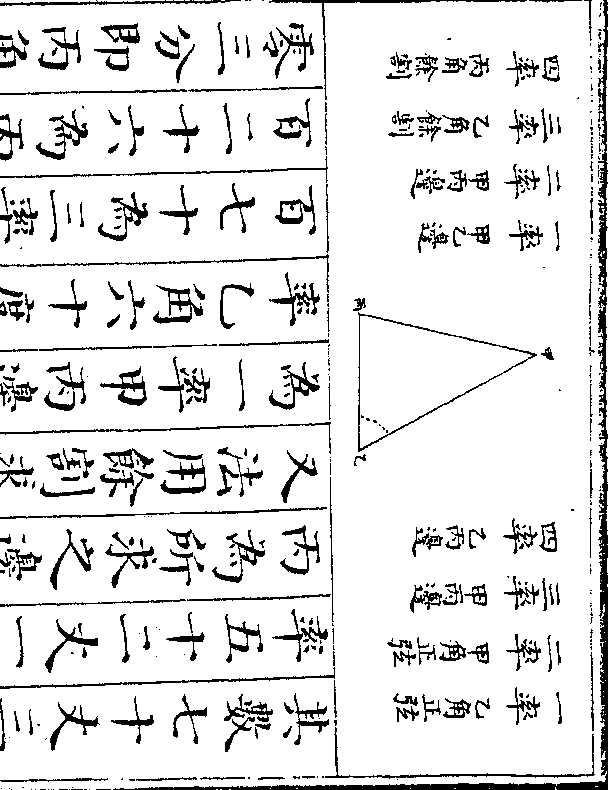 一率 乙角正弦
二率 甲角正弦
三率 甲丙邊
四率 乙丙邊
甲
乙
丙
一率 甲乙邊
二率 甲丙邊
三率 乙角餘割
四率 丙角餘割
其數七十丈三
率五十二丈一
丙為所求之邊
又法用餘割求
為一率甲丙邊
率乙角六十度
百七十為三率
百二十六為丙
零三分即丙角